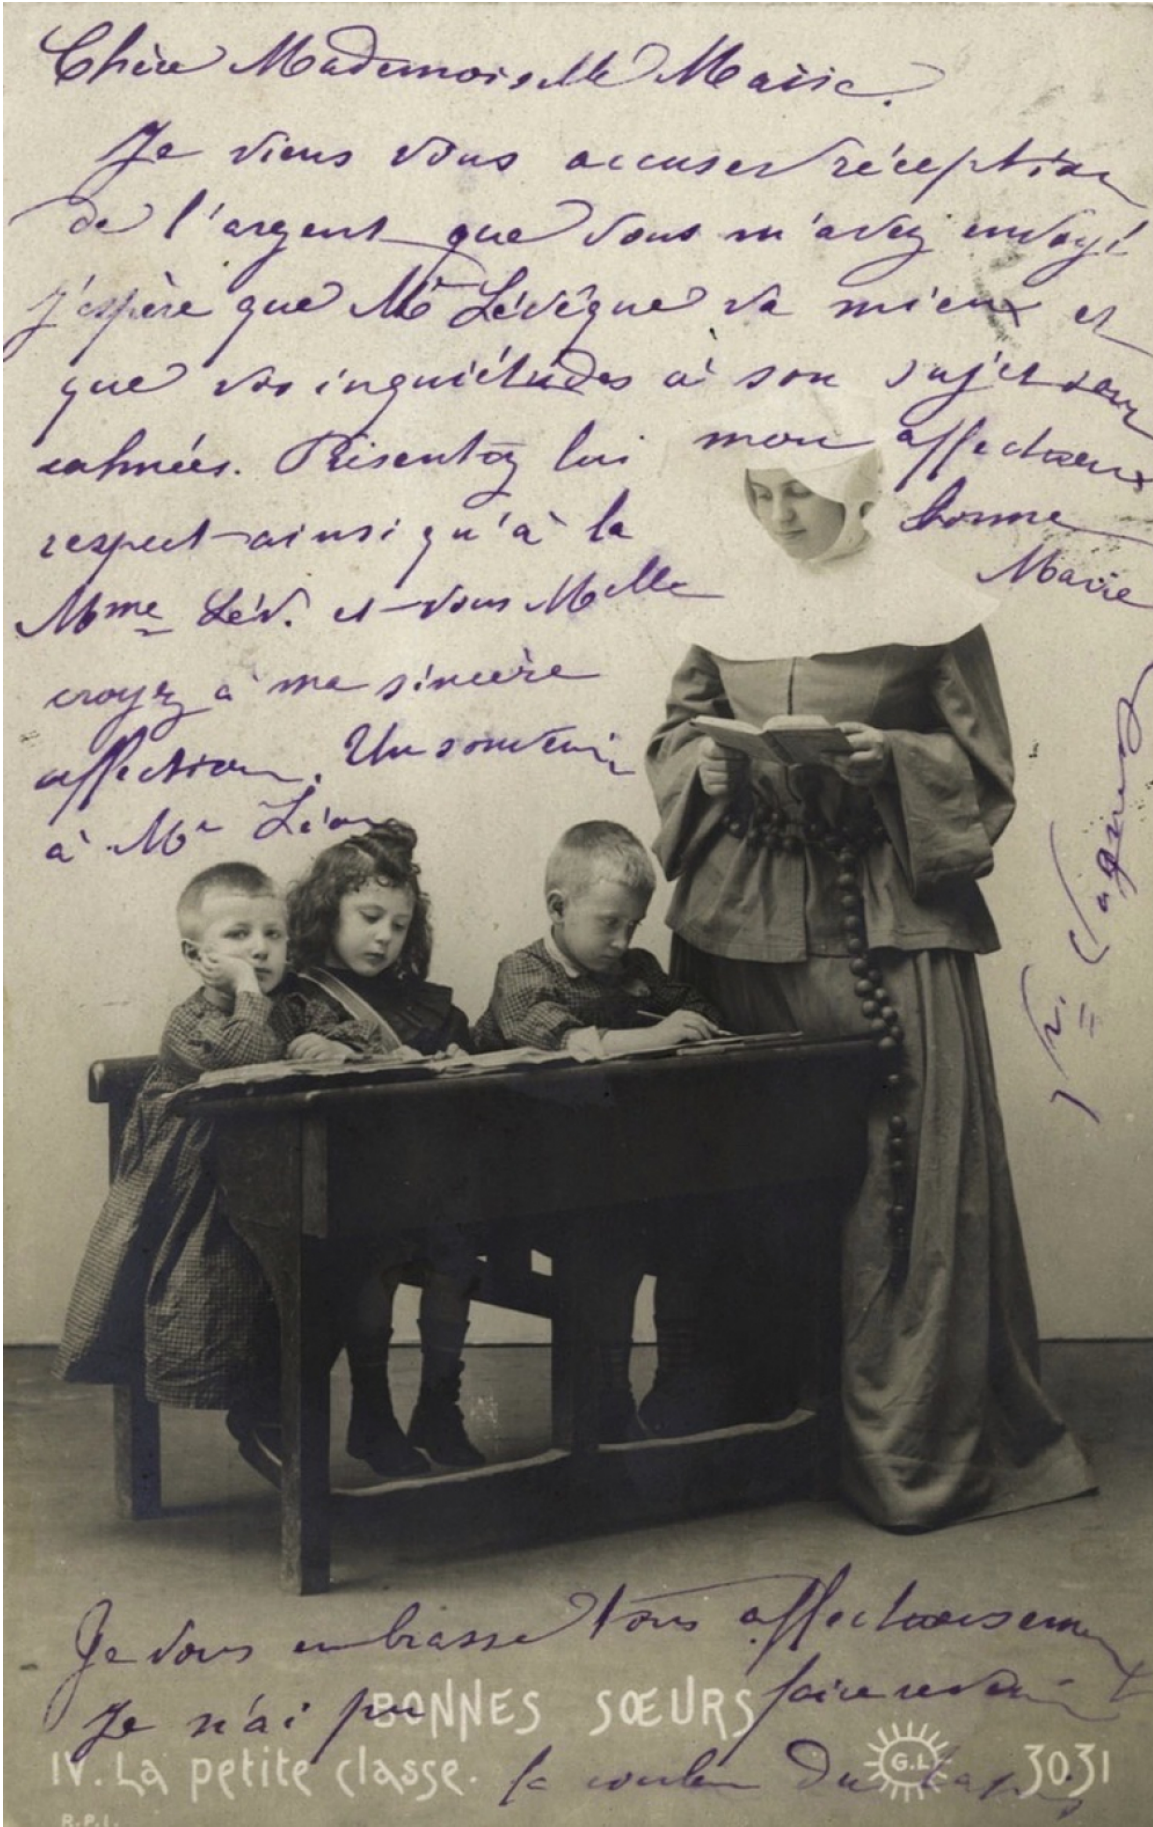 Chère Mademoiselle Marie.
Je viens vous accuser réception
de l'argent que vous m'avez envoyé
j'espère que Mr Lévêque va mieux et
que vos inquiétudes à son sujet sont
calmées. Présentez lui mon affectueux
respect ainsi qu'à la bonne
Mme Lév. et vous Melle Marie
croyez à ma sincère
affection. Un souvenir
à Mr Léon
Je vous embrasse tous affectueusement
Je n'ai pu faire revenir
la couleur du tapis
BONNES SŒURS
IV. La petite classe.
G.L.
3031
R.P.I.